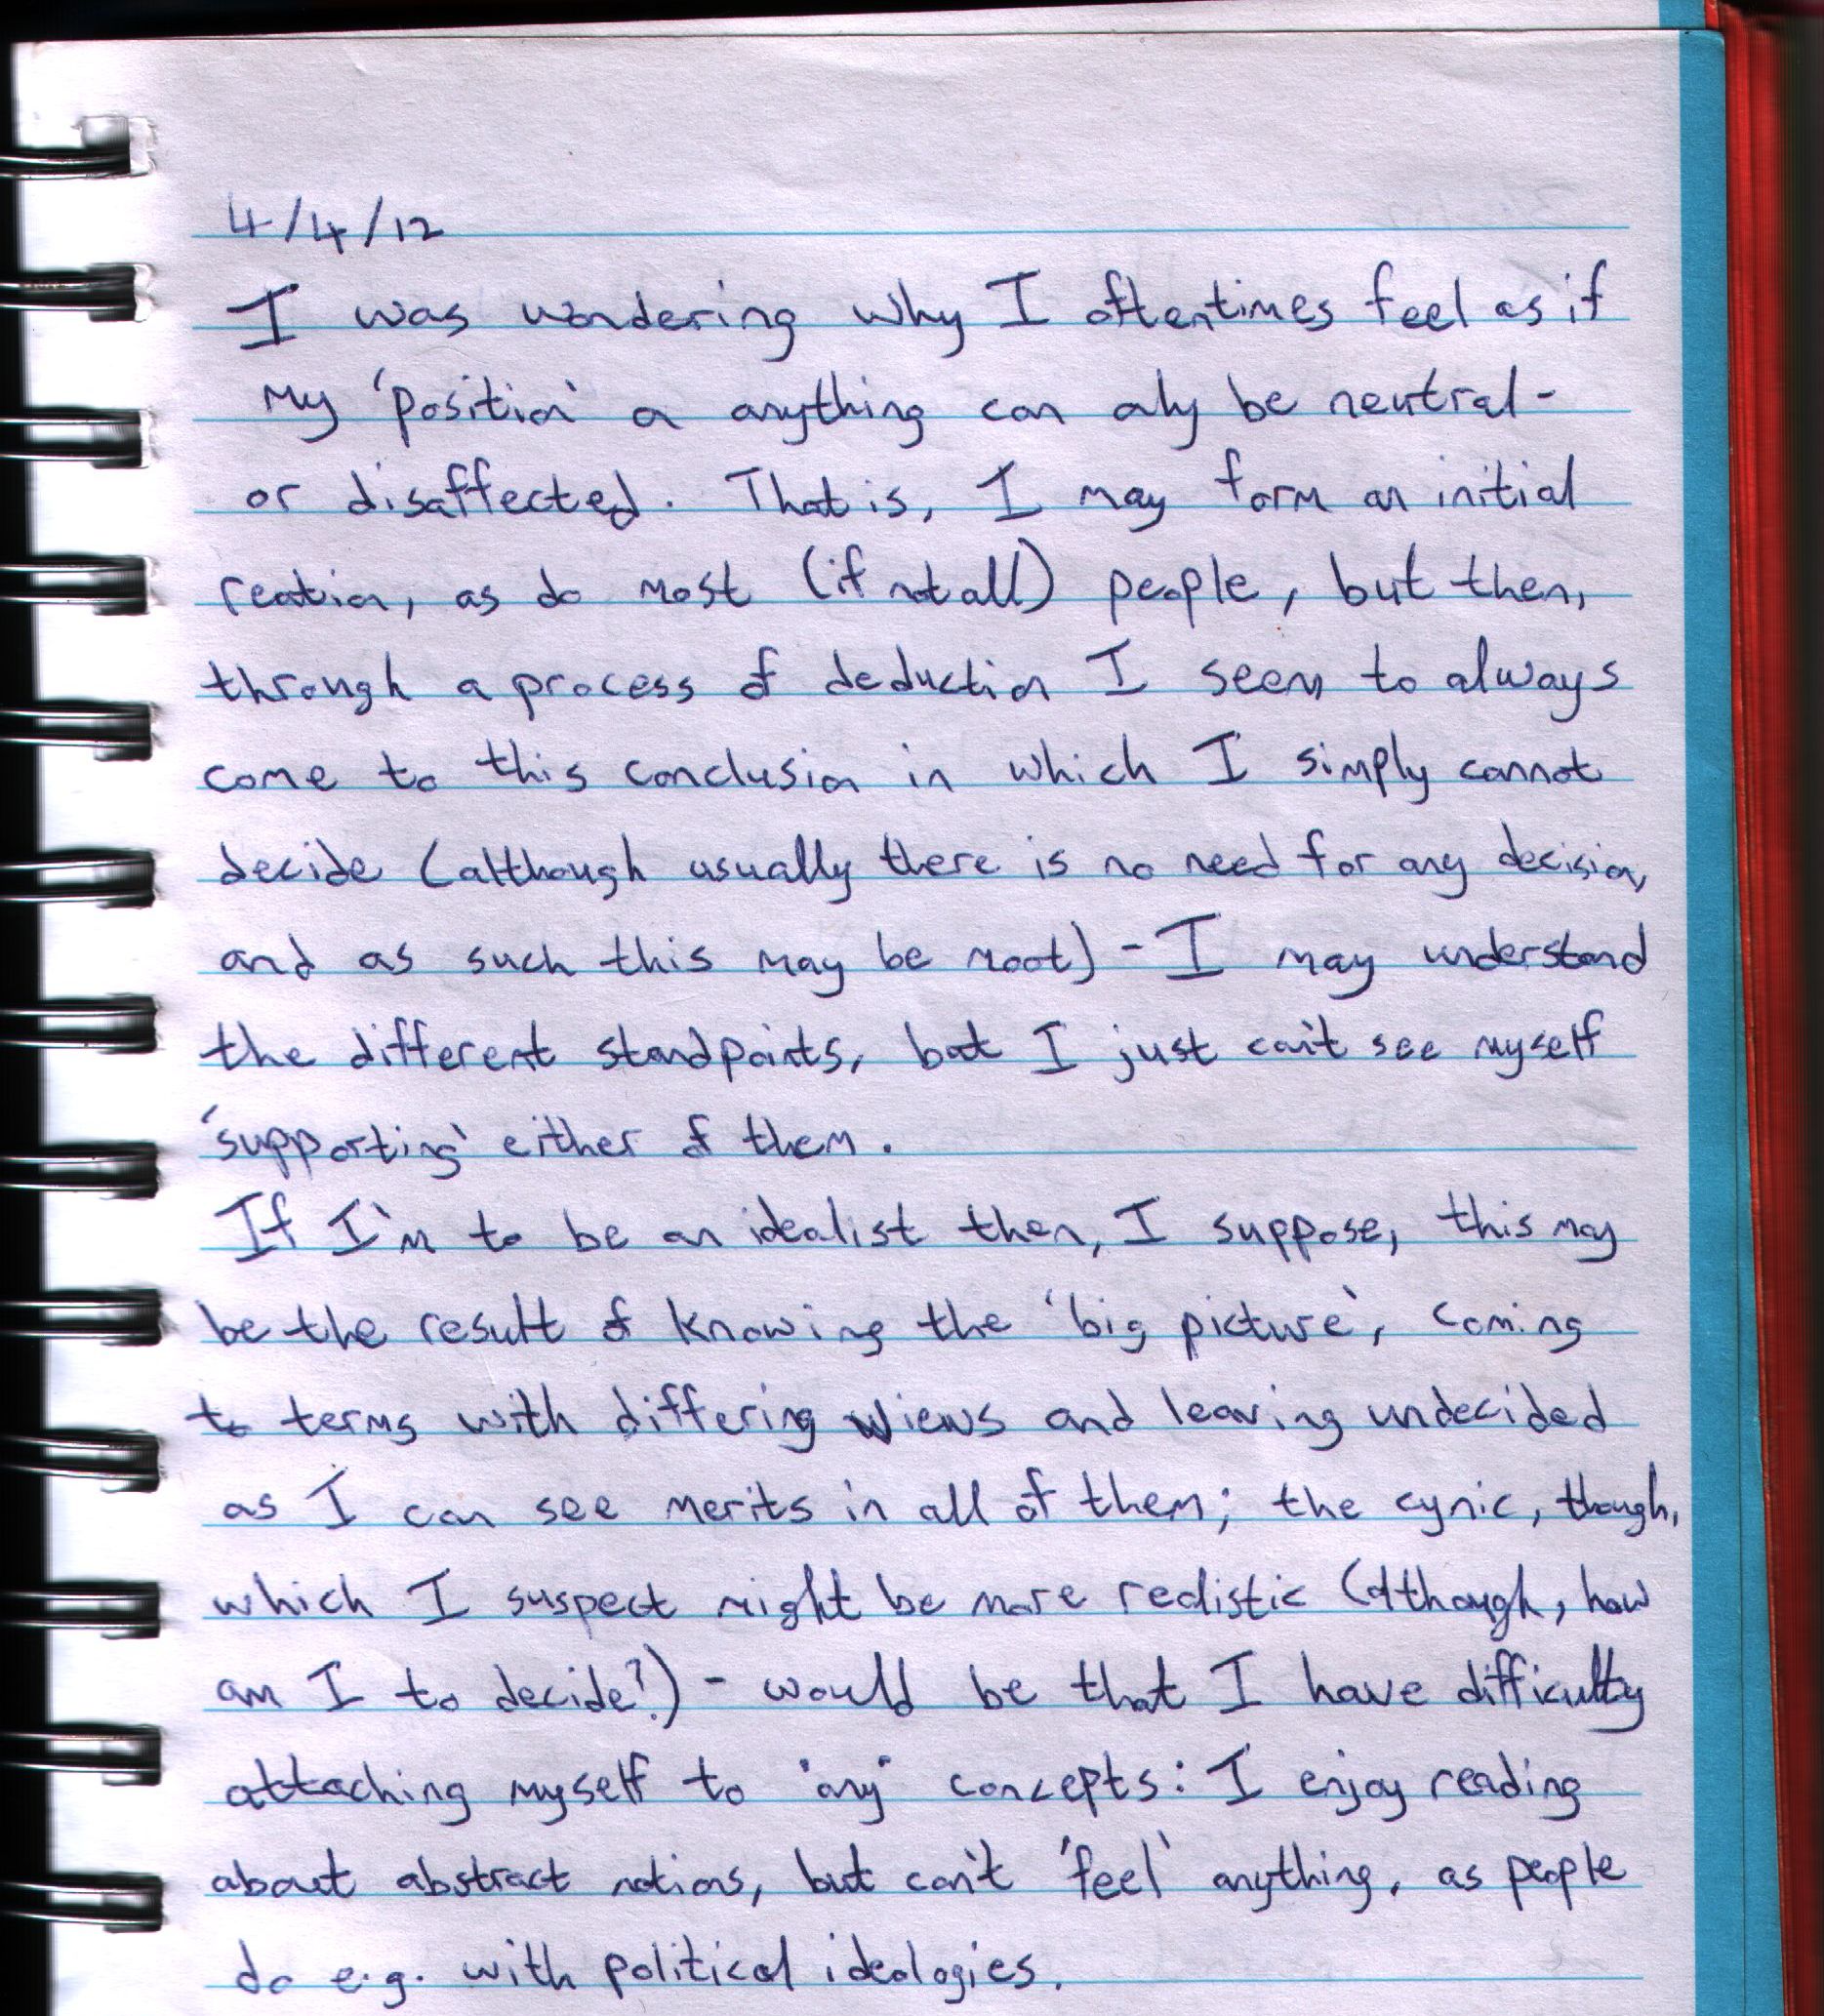 4/4/12
I was wondering why I oftentimes feel as if
my 'position' on anything can only be neutral -
or disaffected. That is, I may form an initial
reation, as do most (if not all) people, but then,
through a process of deduction I seem to always
come to this conclusion in which I simply cannot
decide (although usually there is no need for any decision,
and as such this may be moot) - I may understand
the different standpoints, but I just can't see myself
'supporting' either of them.
If I'm to be an idealist then, I suppose, this may
be the result of knowing the 'big picture', coming
to terms with differing views and leaving undecided
as I can see merits in all of them; the cynic, though,
which I suspect might be more realistic (although, how
am I to decide?) - would be that I have difficulty
attaching myself to 'any' concepts: I enjoy reading
about abstract notions, but can't 'feel' anything, as people
do e.g. with political ideologies.